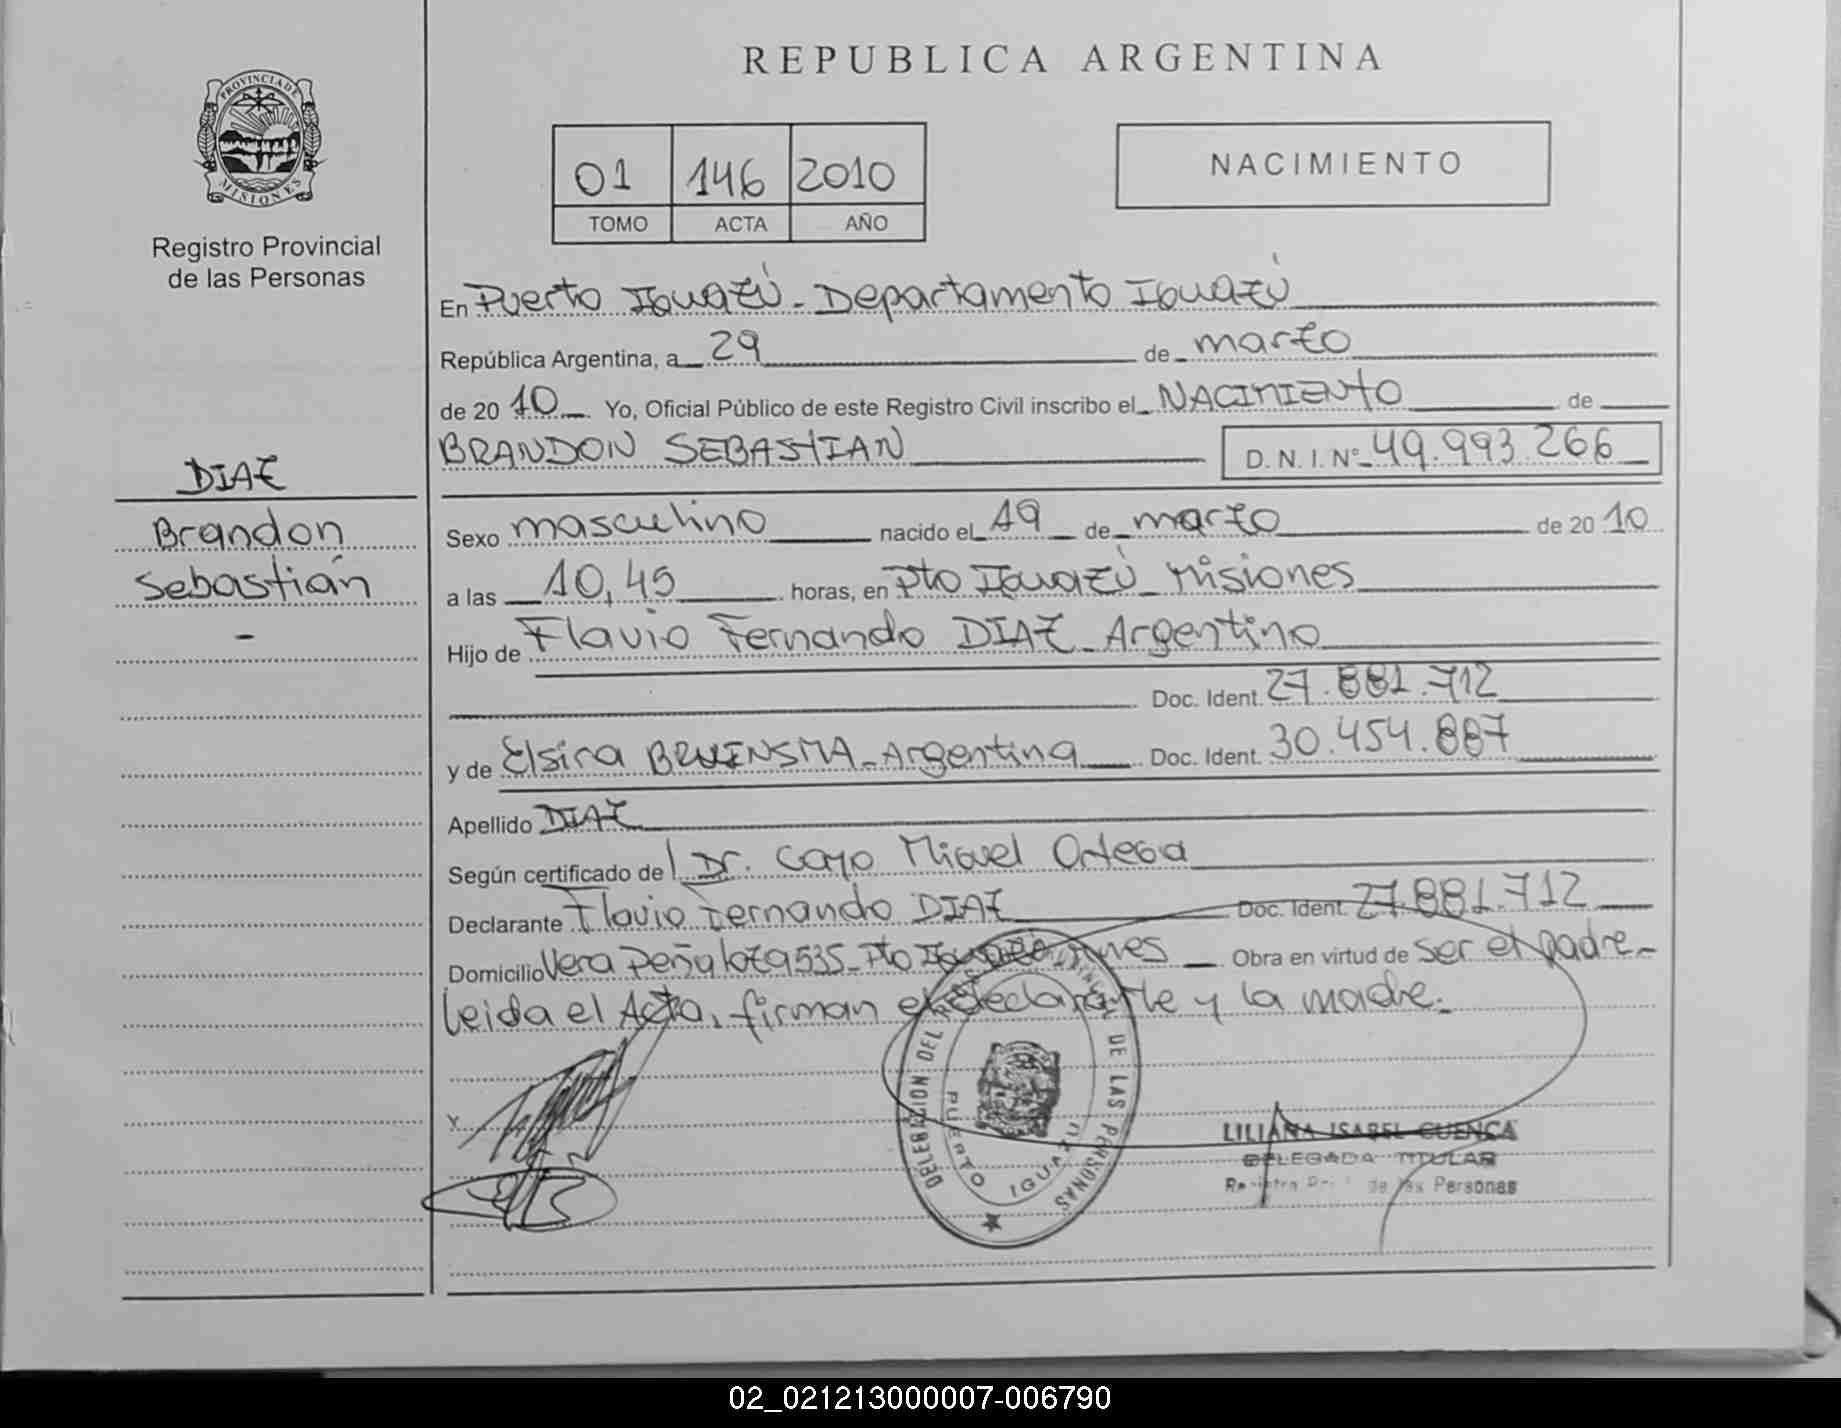 REPUBLICA ARGENTINA
PROVINCIA DE
MISIONES
Registro Provincial
de las Personas
01 146 2010
TOMO ACTA AÑO
NACIMIENTO
En Puerto Iguazú - Departamento Iguazú
República Argentina, a 29 de marzo
de 20 10 Yo, Oficial Público de este Registro Civil inscribo el NACIMIENTO de
BRANDON SEBASTIAN D.N.I. Nº 49.993.266
DIAZ
Brandon
Sebastián
-
Sexo masculino nacido el 19 de marzo de 20 10
a las 10,45 horas, en Pto Iguazú Misiones
Hijo de Flavio Fernando DIAZ - Argentino
Doc. Ident. 27.881.712
y de Elsira BRUINSMA - Argentina Doc. Ident. 30.454.887
Apellido DIAZ
Según certificado de l Dr. Cayo Miguel Ortega
Declarante Flavio Fernando DIAZ Doc. Ident. 27.881.712
Domicilio Vera Peñaloza 535 - Pto Obra en virtud de ser el padre -
leida el Acta, firman el declarante y la madre.
DELEGACION DEL DE LAS PERSONAS
PUERTO IGUAZU
LILIANA ISABEL CUENCA
DELEGADA TITULAR
de las Personas
02_021213000007-006790